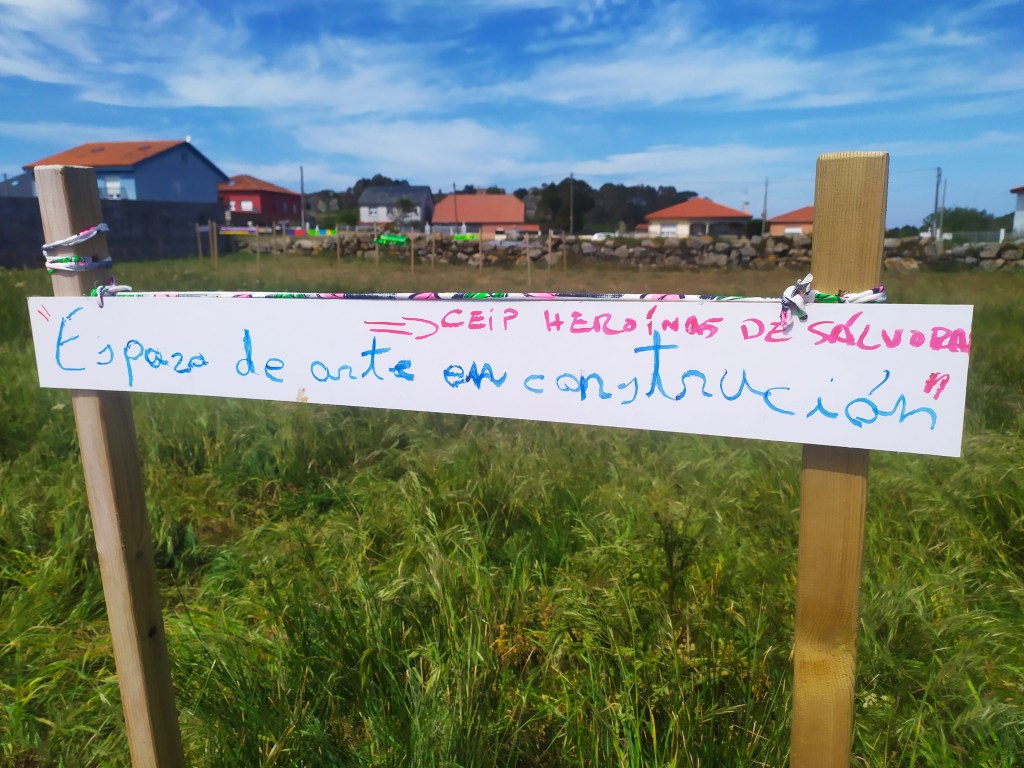 => CEIP HEROÍNAS DE SÁLVORA
"Espazo de arte en construción"